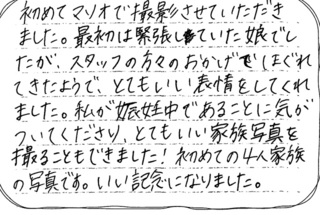 初めてマリオで撮影させていただき
ました。最初は緊張していた娘でし
たが、スタッフの方々のおかげでほぐれ
てきたようで、とてもいい表情をしてくれ
ました。私が妊娠中であることに気が
ついてくださり、とてもいい家族写真を
撮ることもできました！初めての4人家族
の写真です。いい記念になりました。